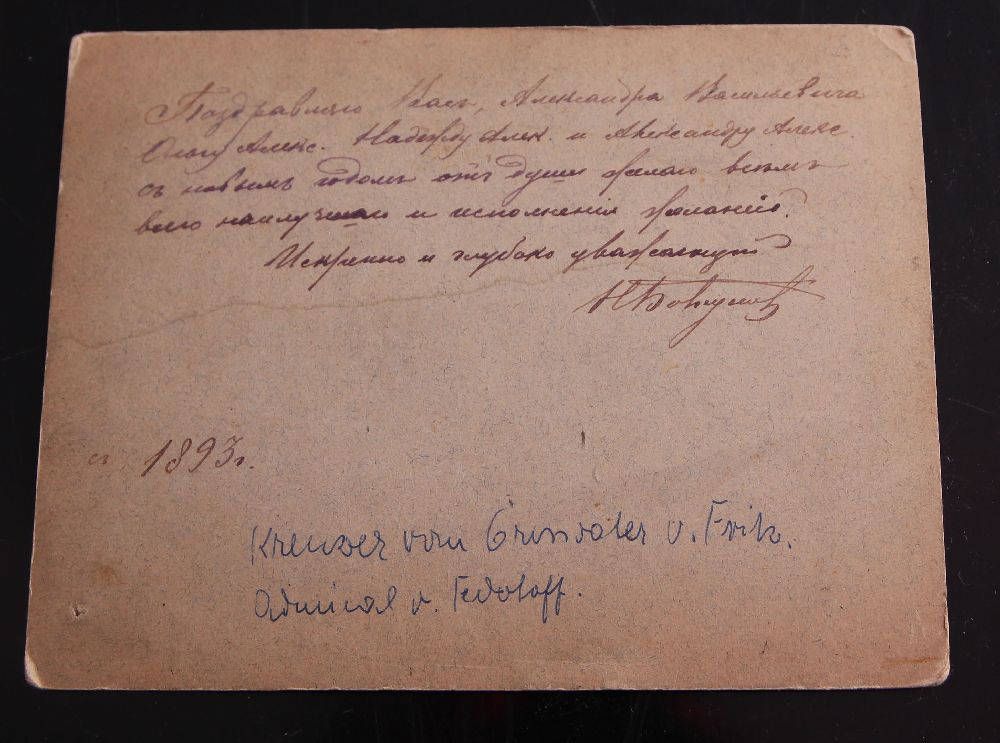 Поздравляю Васъ, Александра Васильевича
Ольгу Алекс. Надежду Алек. и Александру Алекс.
съ новымъ годомъ отъ души желаю всѣмъ
всего наилучшаго и исполненія желаній.
Искренно и глубоко уважающій
1893 г.
Kreuzer vom Grossvater v. Frik.
Admiral v. Fedotoff.